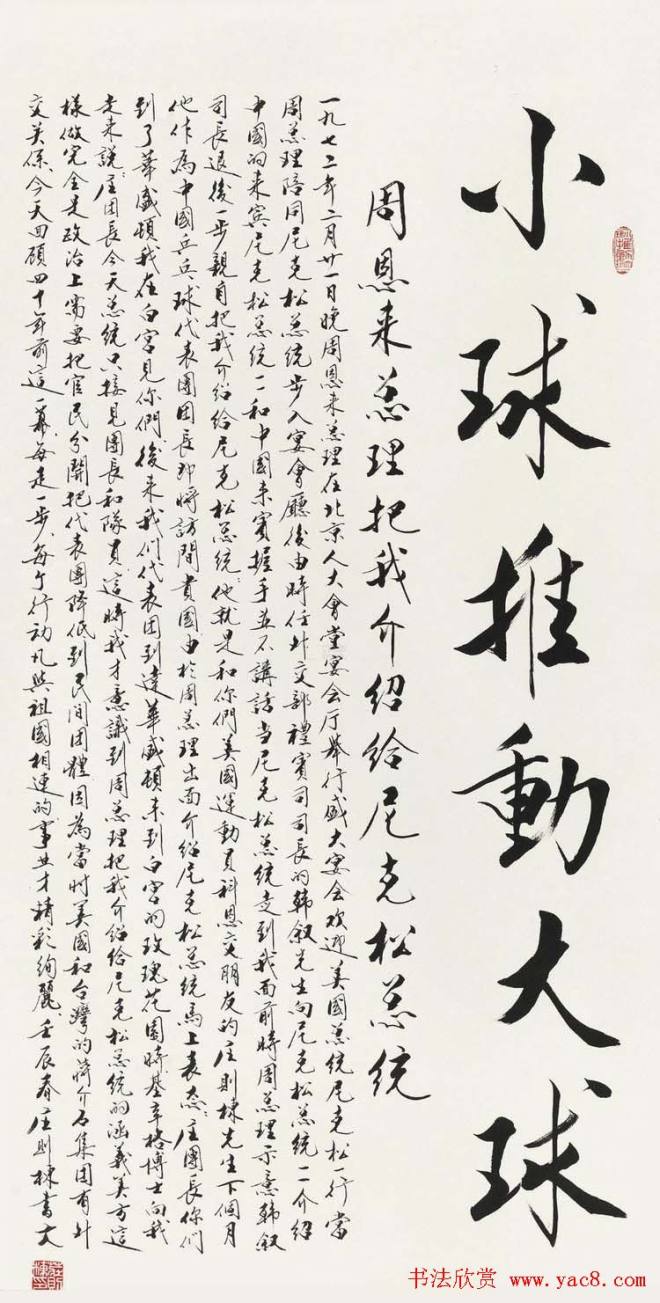 小球推動大球
周恩来总理把我介紹给尼克松总统
一九七二年二月廿一日晚周恩来总理在北京人大會堂宴会厅举行盛大宴会欢迎美國总统尼克松一行當
周总理陪同尼克松总统步入宴會廳後由時任外交部禮賓司司長的韩叙先生向尼克松总统一一介紹
中國的来宾尼克松总统一一和中國来賓握手並不講話当尼克松总统走到我面前時周总理示意韩叙
司長退後一步親自把我介绍给尼克松总统:他就是和你們美國運動員科恩交朋友的庄则棟先生下個月
他作為中國乒乓球代表團团長即将訪問貴國由於周总理出面介绍尼克松总统馬上表态:庄團長你們
到了華盛頓我在白宫見你們後来我们代表团到達華盛頓来到白宫的玫瑰花園時基辛格博士向我
走来説:庄团長今天总统只接見團長和隊員這時我才意識到周总理把我介绍给尼克松总统的涵義美方這
樣做完全是政治上需要把官民分開把代表團降低到民间团體因為當时美國和台灣的蒋介石集团有外
交关係今天回顾四十年前這一幕每走一步每个行动凡與祖國相連的事业才精彩绚麗壬辰春庄则棟書文
书法欣赏 www.yac8.com